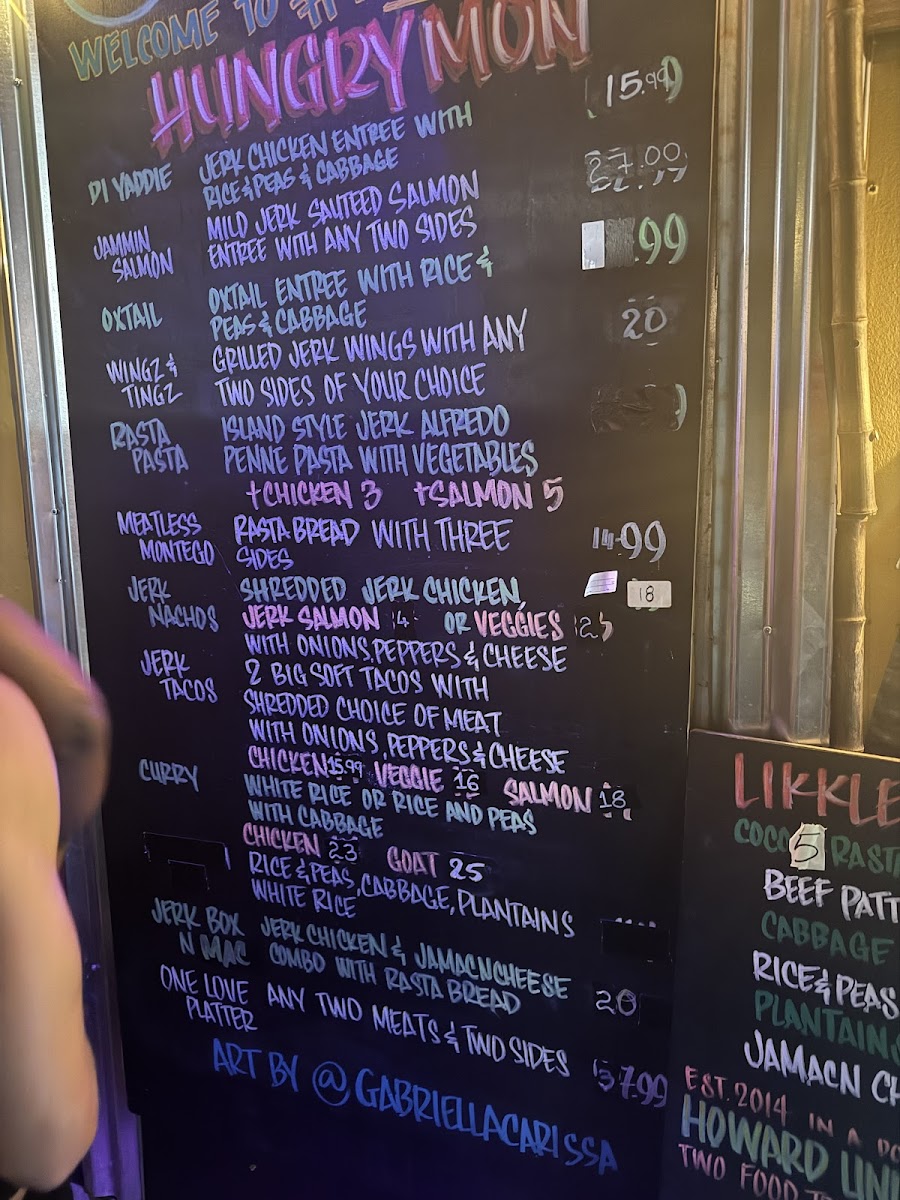 WELCOME TO
HUNGRY MON
DI YADDIE JERK CHICKEN ENTREE WITH 15.99
RICE & PEAS & CABBAGE
JAMMIN MILD JERK SAUTEED SALMON 27.00
SALMON ENTREE WITH ANY TWO SIDES
OXTAIL OXTAIL ENTREE WITH RICE & .99
PEAS & CABBAGE
WINGZ & GRILLED JERK WINGS WITH ANY 20
TINGZ TWO SIDES OF YOUR CHOICE
RASTA ISLAND STYLE JERK ALFREDO
PASTA PENNE PASTA WITH VEGETABLES
+CHICKEN 3 +SALMON 5
MEATLESS RASTA BREAD WITH THREE 14.99
MONTEGO SIDES
JERK SHREDDED JERK CHICKEN, 18
NACHOS JERK SALMON OR VEGGIES
WITH ONIONS, PEPPERS & CHEESE
JERK 2 BIG SOFT TACOS WITH
TACOS SHREDDED CHOICE OF MEAT
WITH ONIONS, PEPPERS & CHEESE
CHICKEN 15.99 VEGGIE 16 SALMON 18
CURRY WHITE RICE OR RICE AND PEAS
WITH CABBAGE
CHICKEN 23 GOAT 25
RICE & PEAS, CABBAGE, PLANTAINS
WHITE RICE
JERK BOX JERK CHICKEN & JAMACNCHEESE
N MAC COMBO WITH RASTA BREAD 20
ONE LOVE ANY TWO MEATS & TWO SIDES
PLATTER 37.99
ART BY @GABRIELLACARISSA
LIKKLE
COCO 5 RASTA
BEEF PATT
CABBAGE
RICE & PEAS
PLANTAINS
JAMACN CH
EST. 2014 IN A DO
HOWARD UNI
TWO FOOD